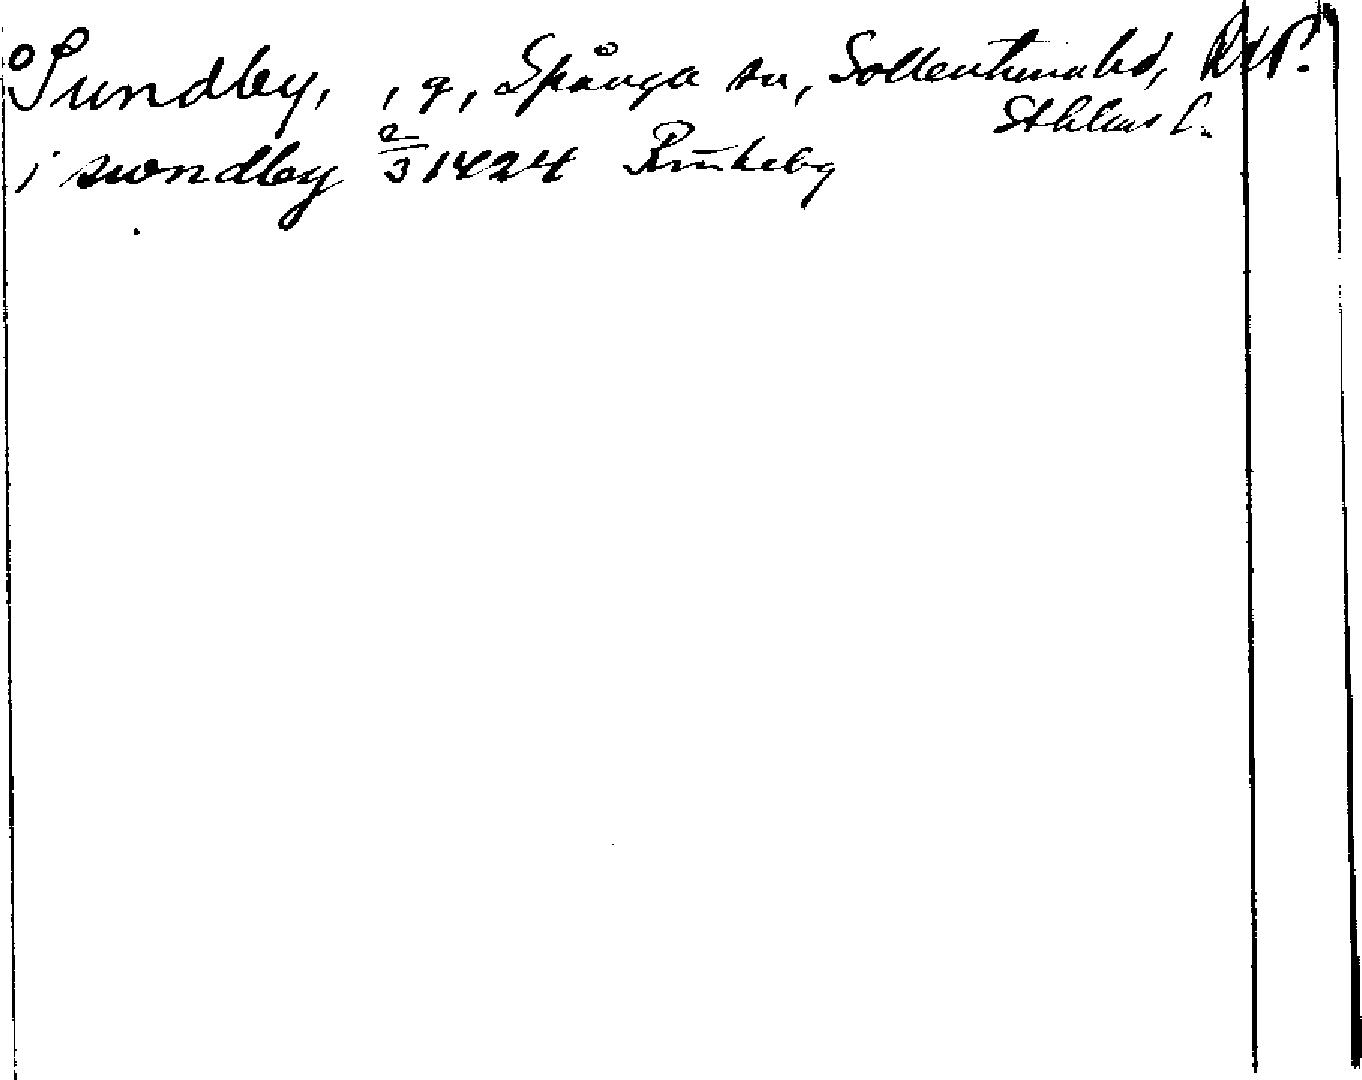 ° Sundby, , g, Spånga sn, Sollentuna hd,
Sthlms l.
i swndby 2/3 1424 Rinkeby